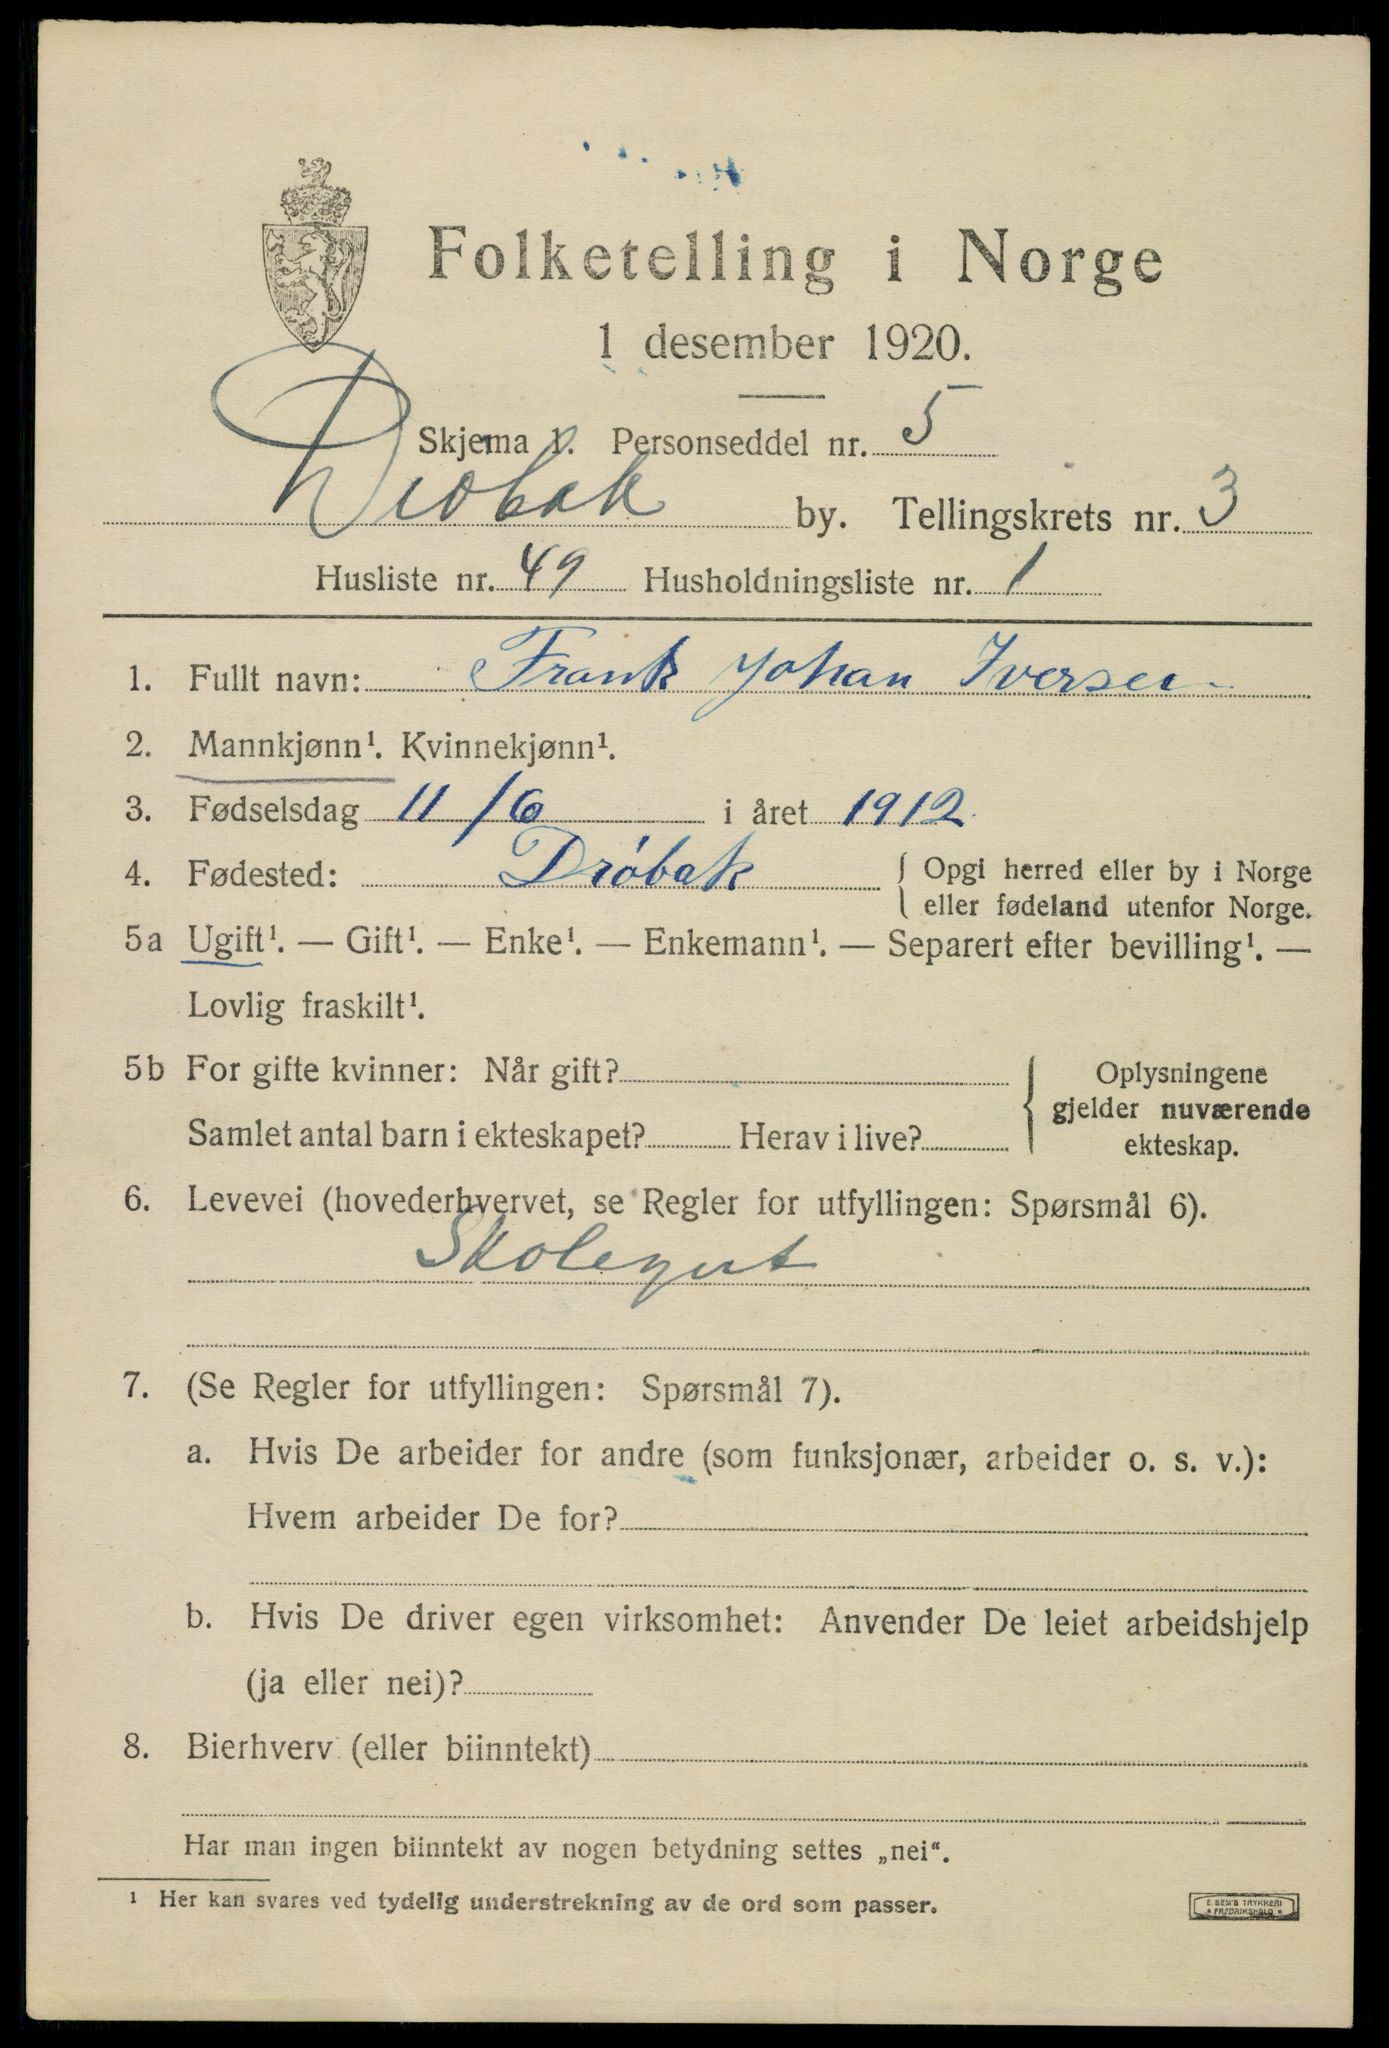 Folketelling i Norge
1 desember 1920.
Skjema 1. Personseddel nr. 5
Drøbak by. Tellingskrets nr. 3
Husliste nr. 49 Husholdningsliste nr. 1
1. Fullt navn: Frank Johan Iversen
2. Mannkjønn¹. Kvinnekjønn¹.
3. Fødselsdag 11/6 i året 1912
4. Fødested: Drøbak { Opgi herred eller by i Norge
eller fødeland utenfor Norge.
5a Ugift¹. — Gift¹. — Enke¹. — Enkemann¹. — Separert efter bevilling¹. —
Lovlig fraskilt¹.
5b For gifte kvinner: Når gift?
Samlet antal barn i ekteskapet? Herav i live?
{ Oplysningene
gjelder nuværende
ekteskap.
6. Levevei (hovederhvervet, se Regler for utfyllingen: Spørsmål 6).
Skolegut
7. (Se Regler for utfyllingen: Spørsmål 7).
a. Hvis De arbeider for andre (som funksjonær, arbeider o. s. v.):
Hvem arbeider De for?
b. Hvis De driver egen virksomhet: Anvender De leiet arbeidshjelp
(ja eller nei)?
8. Bierhverv (eller biinntekt)
Har man ingen biinntekt av nogen betydning settes „nei".
¹ Her kan svares ved tydelig understrekning av de ord som passer.
E. SEM'S TRYKKERI
* FREDRIKSHALD *